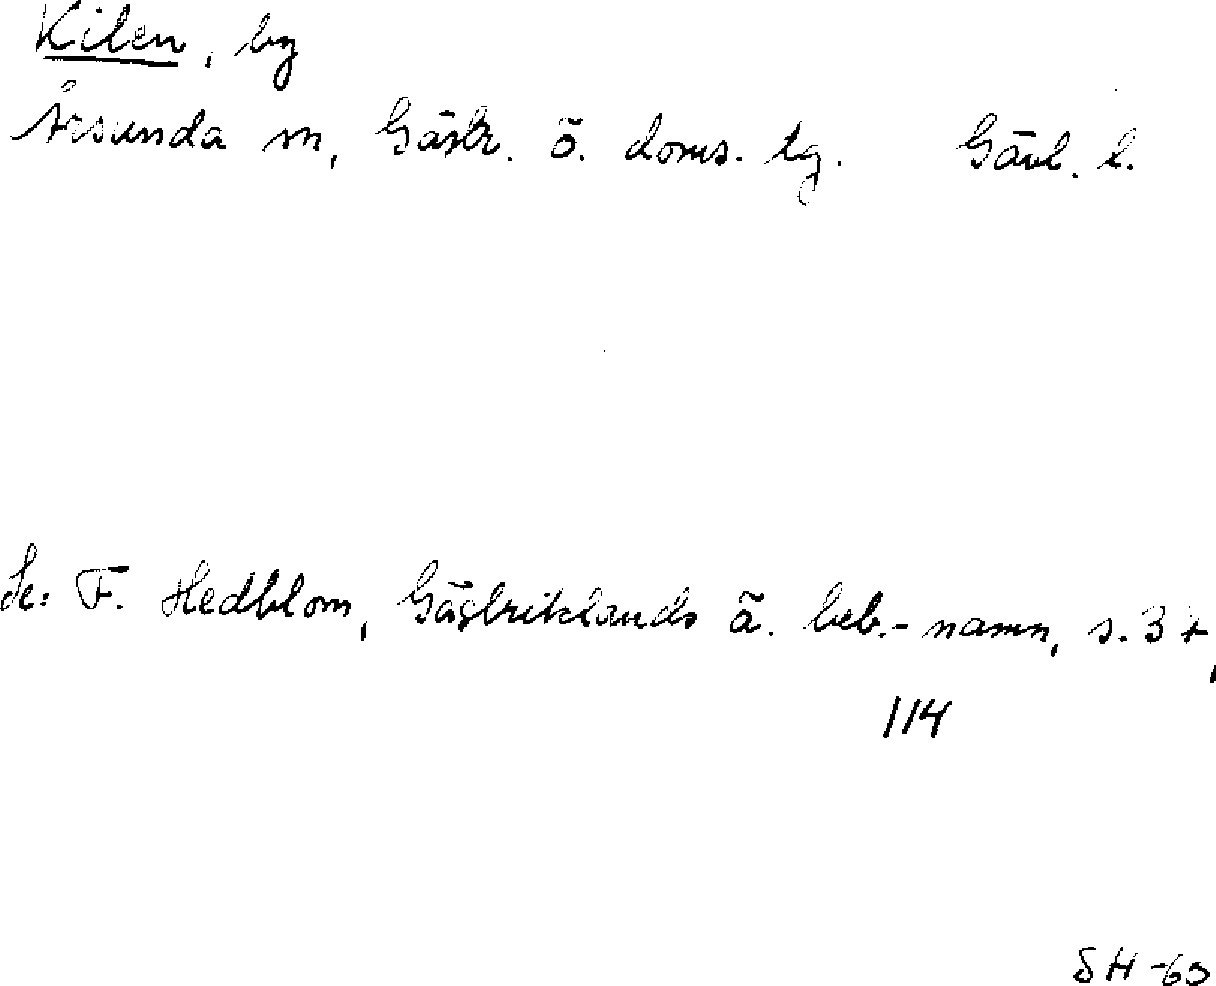 Kilen, by
Årsunda sn, Gästr. ö. doms. tg. Gävl. l.
Se: F. Hedblom, Gästriklands ä. beb.-namn, s. 37,
114
SH -60